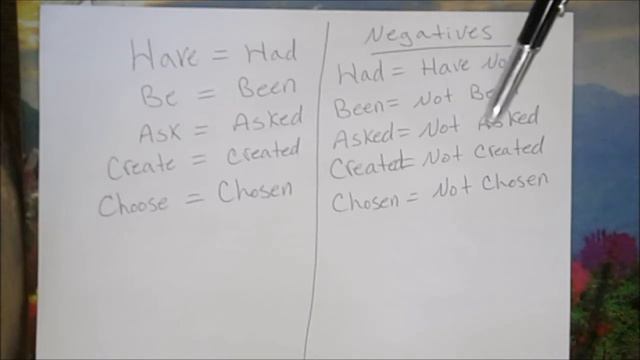 Have = Had
Be = Been
Ask = Asked
Create = Created
Choose = Chosen
Negatives
Had = Have
Been = Not
Asked = Not Asked
Created = Not Created
Chosen = Not Chosen